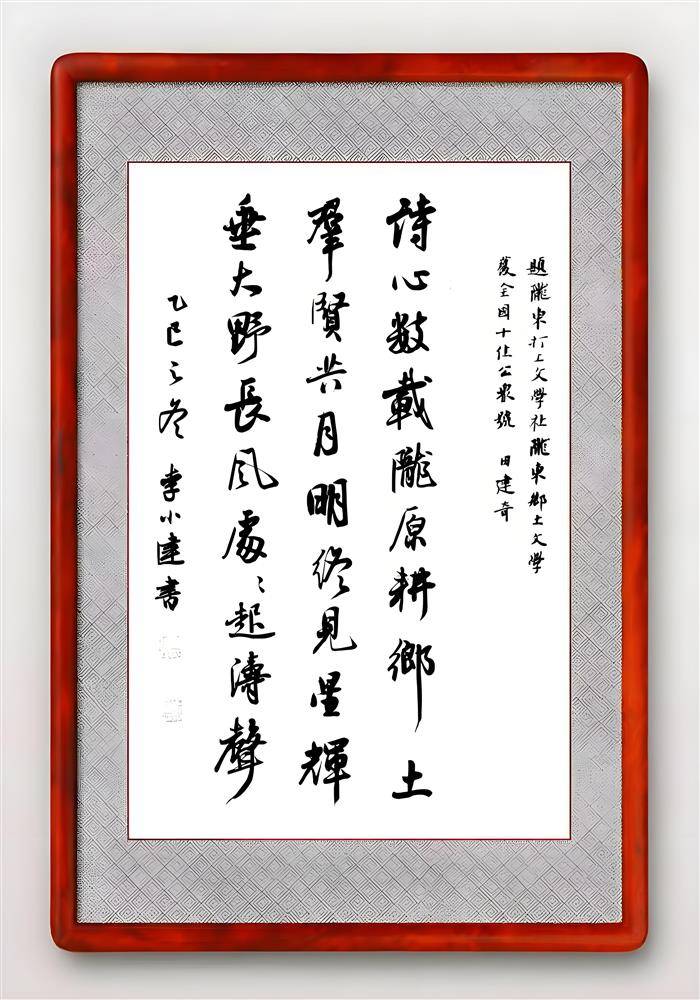 題隴東打工文學社隴東鄉土文學
獲全國十佳公眾號 田建奇
詩心數載隴原耕鄉土
羣賢共月明終見星輝
垂大野長風處〻起濤聲
乙巳之冬 李小達書